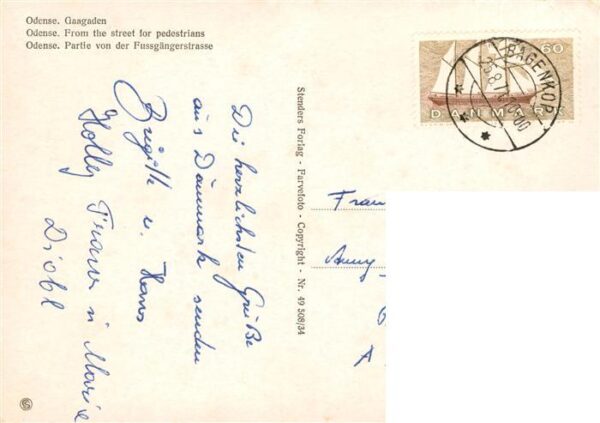 Odense. Gaagaden
Odense. From the street for pedestrians
Odense. Partie von der Fussgängerstrasse
Die herzlichsten Grüße
aus Dänemark senden
Brigitte u. Hans
Holly Franz u Marie
Diobl
Stenders Forlag - Farvefoto - Copyright - Nr. 49 508/34
60
DANMARK
BAGENKOP
Fran
Anny